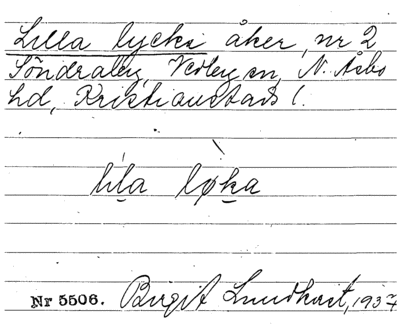 Lilla lycke åker, nr 2
Söndraby, Vedby sn, N. Åsbo
hd, Kristianstads l.
lila løka
Nr 5506. Birgit Lundkvist, 1937